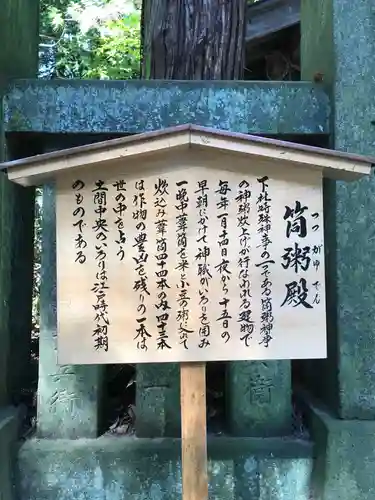 筒粥殿
つつがゆでん
下社特殊神事の一つである筒粥神事
の神粥炊上げが行なわれる建物で
毎年一月十四日夜から十五日の
早朝にかけて神職がいろりを囲み
一晩中葦筒を米と小豆の粥の上で
炊込み葦筒四十四本の内四十三本
は作物の豊凶を残りの一本は
世の中を占う
土間中央のいろりは江戸時代初期
のものである